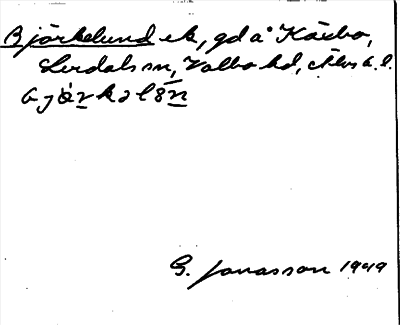 Björkelund ek, gd å Kärbo,
Lerdals sn, Valbo hd, Älvsb. l.
G. Jonasson 1949